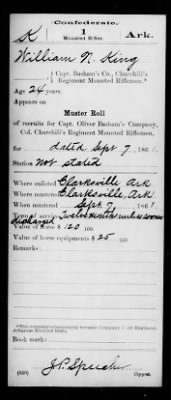 Confederate.
K 1 Ark.
Mounted Rifles.
William N. King
Capt. Basham's Co., Churchill's
Regiment Mounted Riflemen.
Age 24 years.
Appears on
Muster Roll
of recruits for Capt. Oliver Basham's Company,
Col. Churchill's Regiment Mounted Riflemen,
for dated Sept 7, 1861.
Station Not stated
Where enlisted Clarksville, Ark
Where mustered Clarksville, Ark.
When mustered Sept. 7, 1861.
Term of service Twelve months unless sooner
discharged
Value of horse $ 120 /100
Value of horse equipments $ 25 /100
Remarks:
*This company subsequently became Company K 1st Regiment
Arkansas Mounted Rifles.
Book mark:
(650) Copyist.